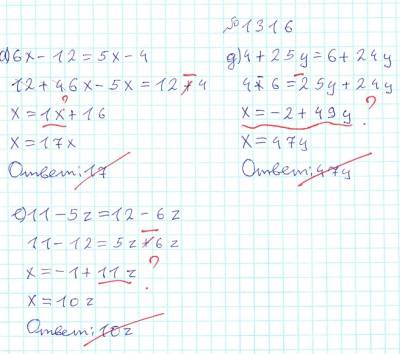 №1316
а) 6x-12=5x-4
12+46x-5x=12+4
?
x=1x+16
x=17x
Ответ: 17
д) 4+25y=6+24y
4+6=25y+24y
x=-2+49y ?
x=47y
Ответ: 47y
е) 11-5z=12-6z
11-12=5z+6z
x=-1+11z ?
x=10z
Ответ: 10z